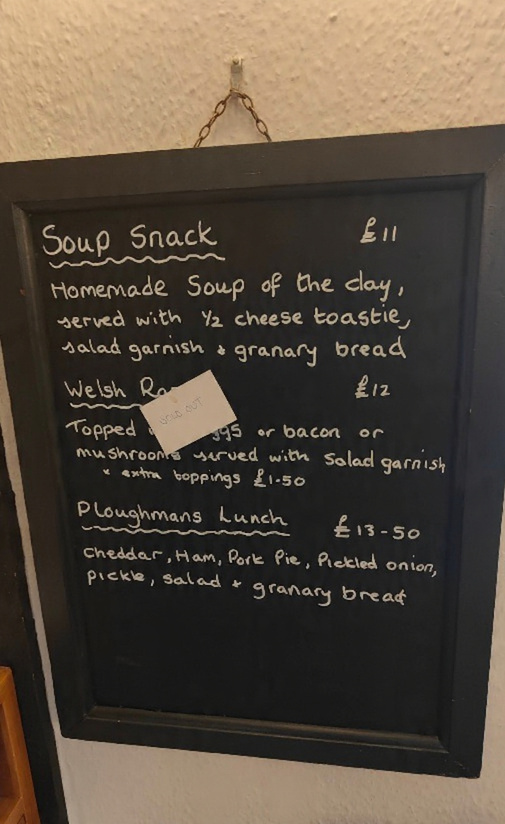 Soup Snack £11
Homemade Soup of the day,
served with 1/2 cheese toastie,
salad garnish & granary bread
Welsh £12
SOLD OUT
Topped or bacon or
mushrooms served with Salad garnish
* extra toppings £1-50
Ploughmans Lunch £13-50
Cheddar, Ham, Pork Pie, Pickled onion,
pickle, salad + granary bread